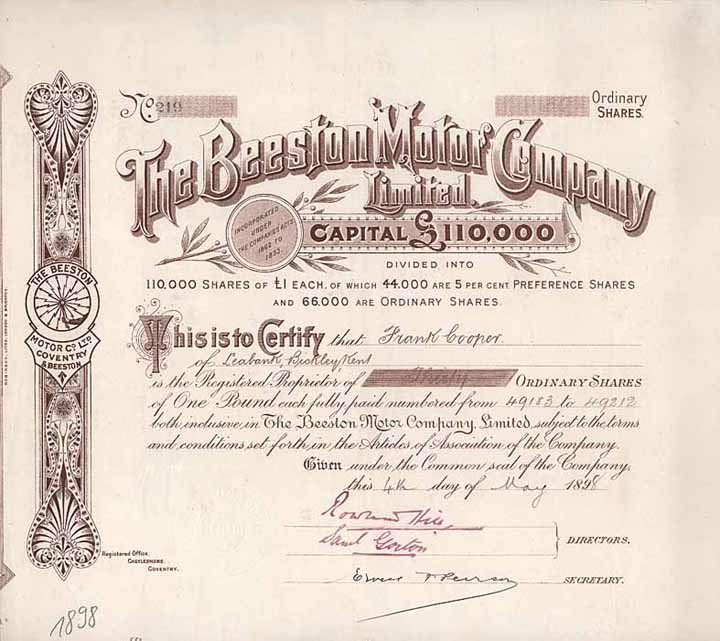 No. 219
Ordinary
SHARES.
The Beeston Motor Company
Limited.
INCORPORATED
UNDER
THE COMPANIES ACTS
1862 TO
1893.
CAPITAL £110,000
DIVIDED INTO
110,000 SHARES OF £1 EACH, OF WHICH 44,000 ARE 5 PER CENT PREFERENCE SHARES
AND 66,000 ARE ORDINARY SHARES.
This is to Certify that Frank Cooper
of Seabank, Bickley, Kent
is the Registered Proprietor of Thirty ORDINARY SHARES
of One Pound each fully paid numbered from 49183 to 49212
both inclusive in The Beeston Motor Company, Limited, subject to the terms
and conditions set forth in the Articles of Association of the Company.
Given under the Common seal of the Company,
this 4th day of May 1898
Rowland Hill
Saml Gorton
DIRECTORS.
SECRETARY.
THE BEESTON
MOTOR CO. LTD
COVENTRY
& BEESTON
Registered Office,
CHEYLESMORE,
COVENTRY.
1898